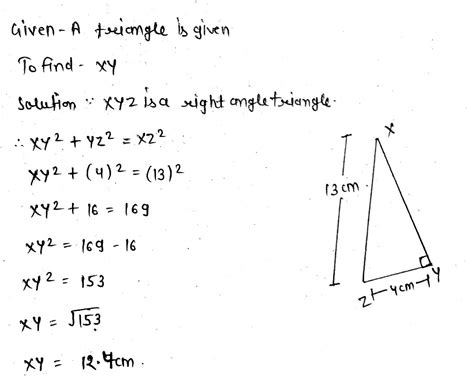 Given - A triangle is given
To find - XY
Solution ∵ XYZ is a right angle triangle.
∴ XY² + YZ² = XZ²
XY² + (4)² = (13)²
XY² + 16 = 169
XY² = 169 - 16
XY² = 153
XY = √153
XY = 12.4cm.
X
13 cm
Z
4cm
Y